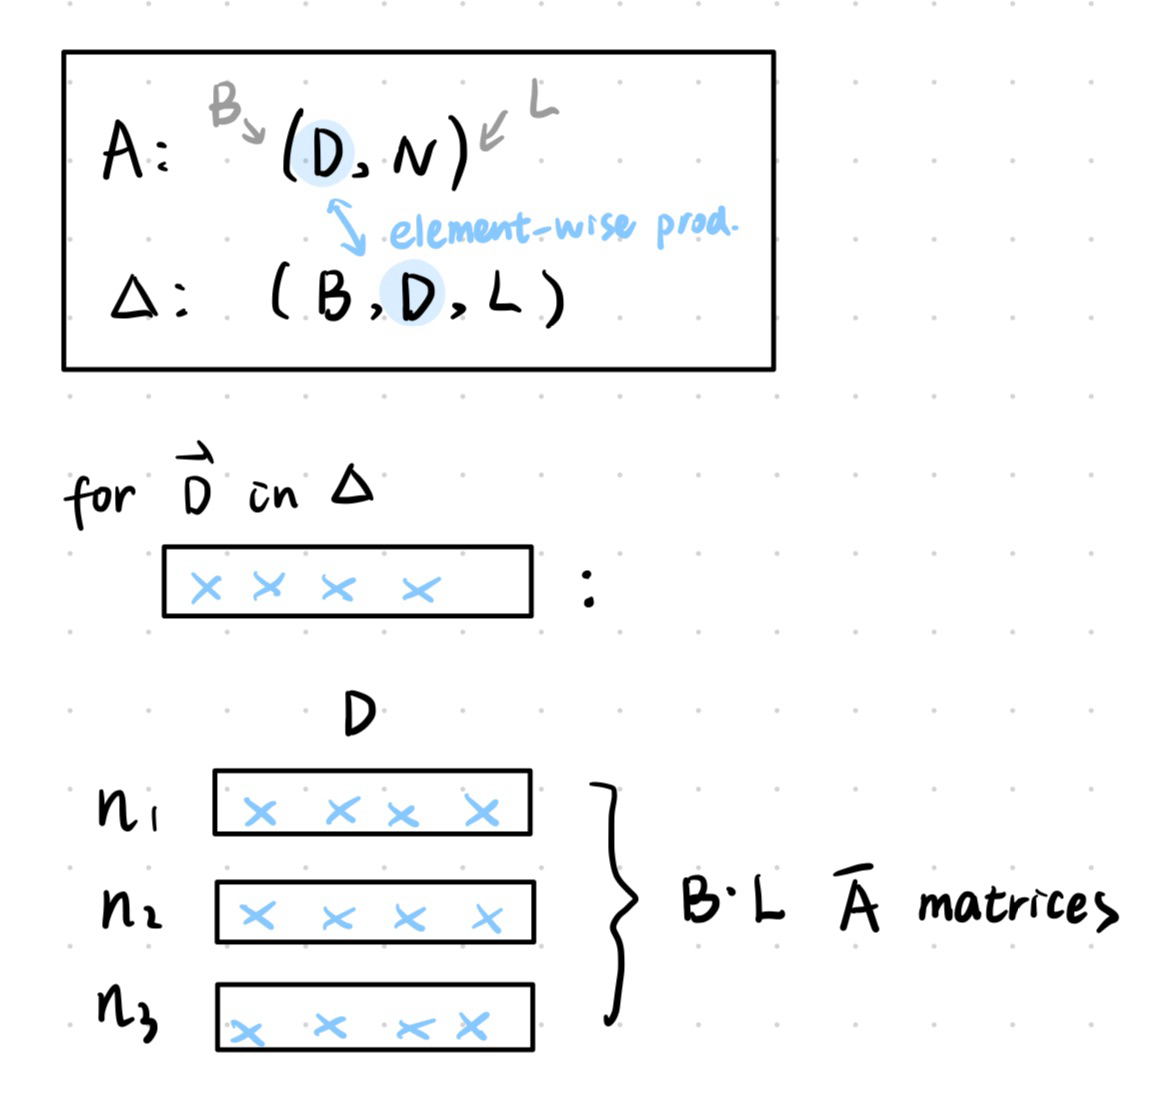 B L
A: (D, N)
element-wise prod.
Δ: (B, D, L)
for D⃗ in Δ
× × × × :
D
n₁ × × × ×
n₂ × × × × } B·L A̅ matrices
n₃ × × × ×